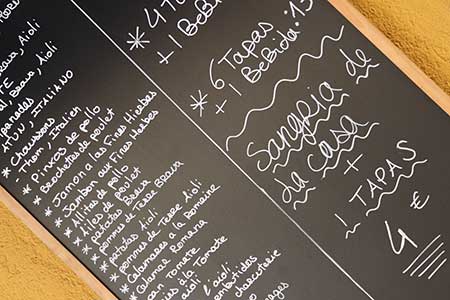 Aioli
Brava, Aioli
ATUN, ITALIANO
* Chaussons
Thon, Italien
* Pinxos de pollo
Brochettes de poulet
* Jamon a las Fines Hierbes
Jambon aux Fines Herbes
* Alitas de pollo
* Ailes de poulet
* patatas Brava
* pommes de terre Brava
* patatas Aioli
* pommes de Terre Aioli
* Calamares a la Romaine
Calamar Romana
Pan Tomate
à la Tomate
l'aioli
embutidos
charcuterie
* 4
+ 1 BeBida
* 6 Tapas
+ 1 BeBida: 13
Sangria
da Casa
+
1 TAPAS
4 €